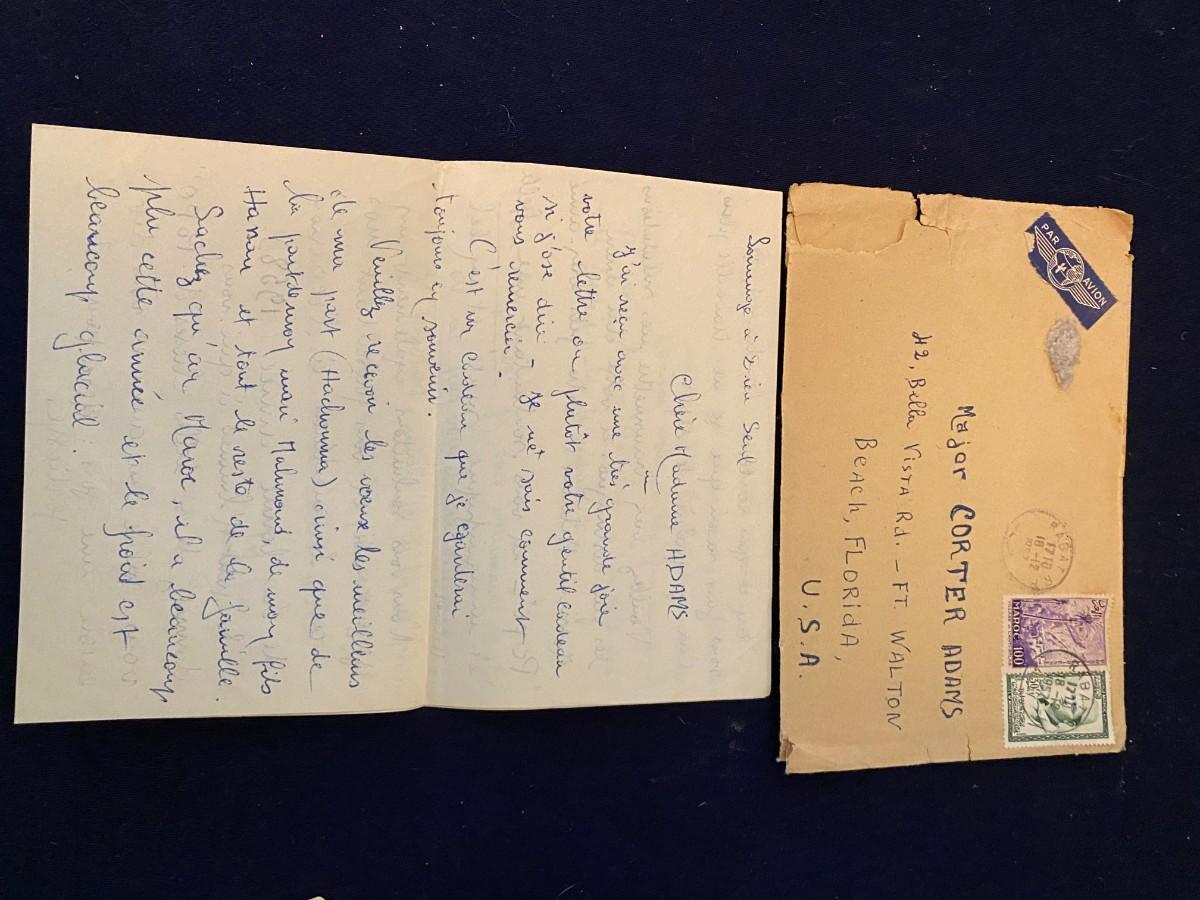 Louange à Dieu Seul
Chère Madame ADAMS
J'ai reçu avec une très grande joie
votre lettre ou plutôt votre gentil cadeau
si j'ose dire - Je ne sais comment
vous remercier.
C'est un cadeau que je garderai
toujours en souvenir.
Veuillez recevoir les vœux les meilleurs
de ma part (Hachouma) ainsi que de
la part de mon mari Mahmoud, de mon fils
Hassan et tout le reste de la famille.
Sachez qu'au Maroc, il a beaucoup
plu cette année et le froid est
beaucoup glacial.
PAR AVION
Major CORTER ADAMS
42, Bella VISTA Rd. - FT. WALTON
BEACH, FLORIDA,
U.S.A.
RABAT
18-12
MAROC 100
RABAT